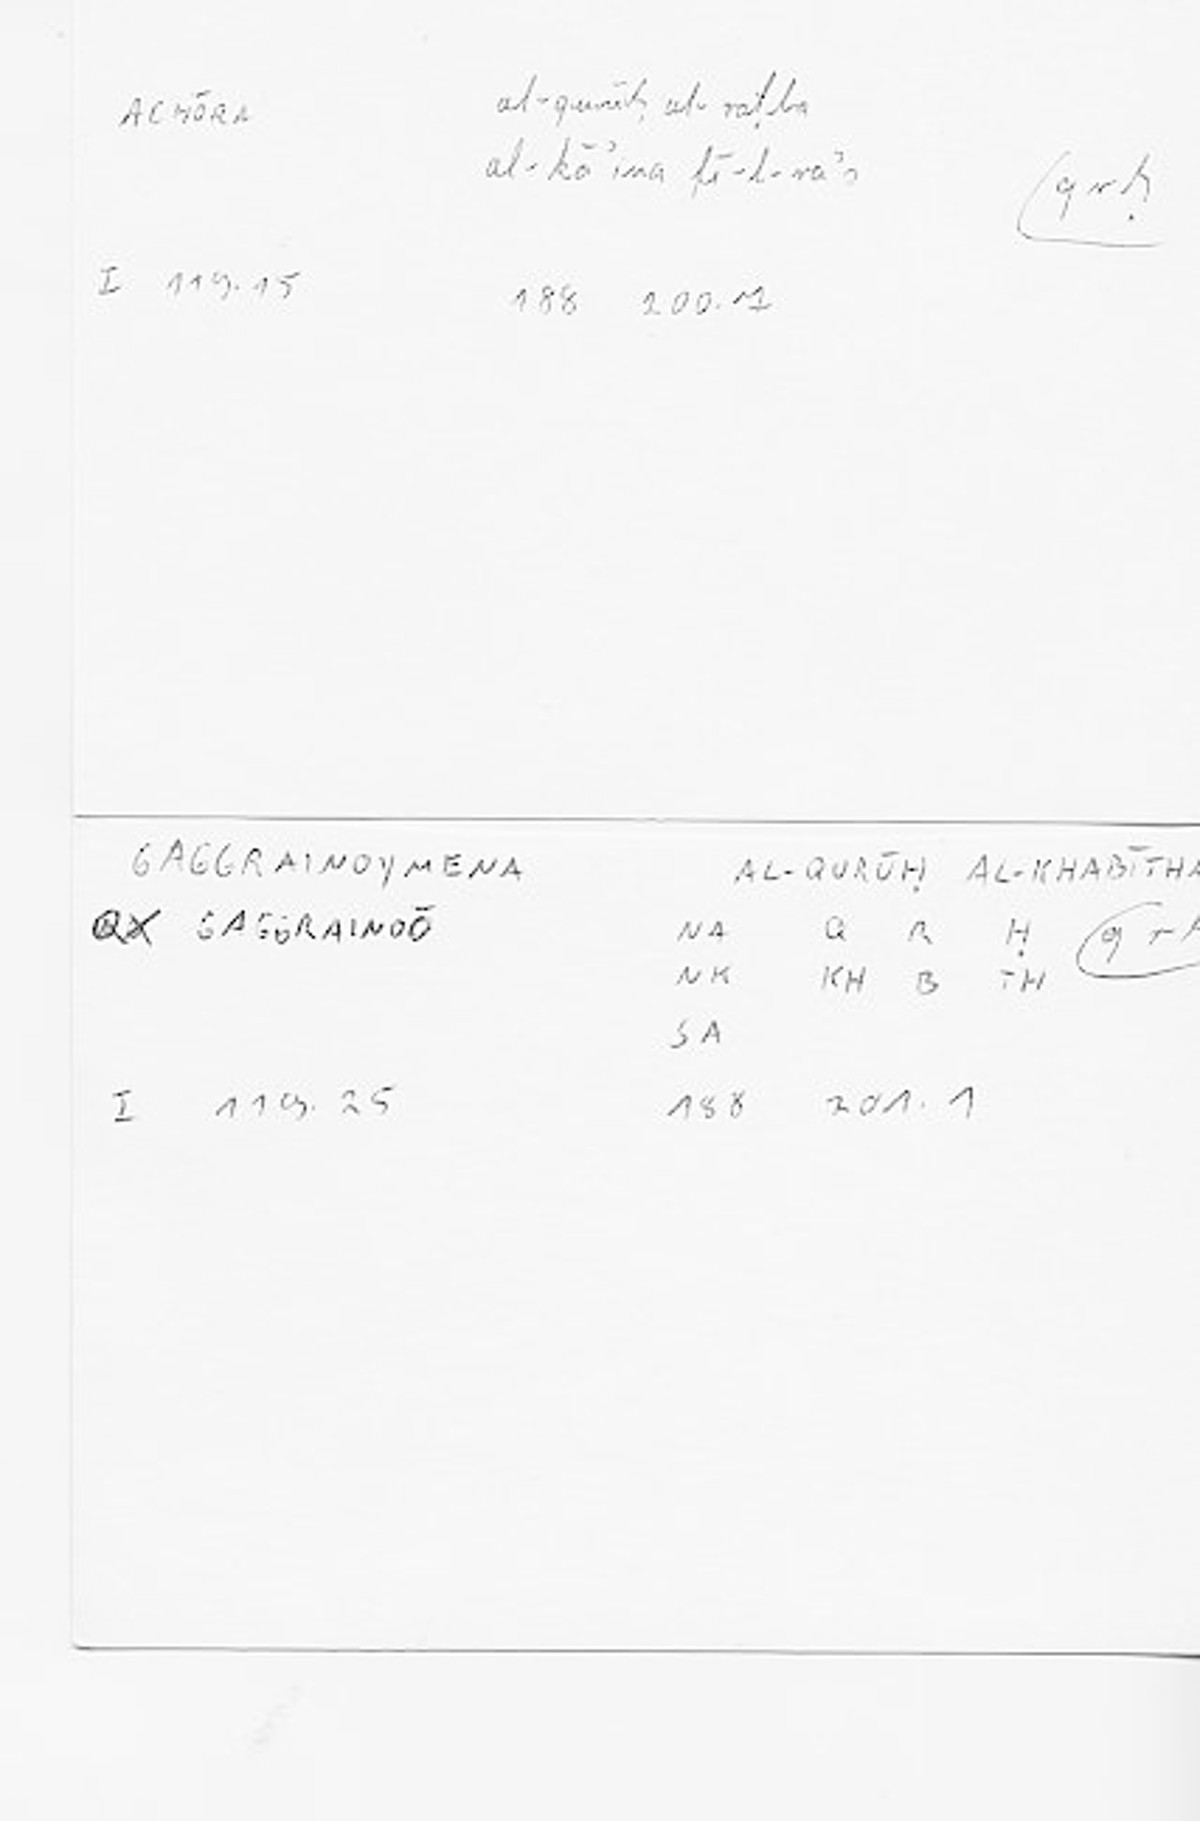 ACHŌRA al-qurūḥ al-raṭba
al-kā'ina fī-l-ra's
(qrḥ
I 119.15 188 200.11
GAGGRAINOYMENA AL-QURŪḤ AL-KHABĪTHA
QX GAGGRAINOŌ NA Q R Ḥ (qrḥ
NK KH B TH
SA
I 119.25 188 201.1